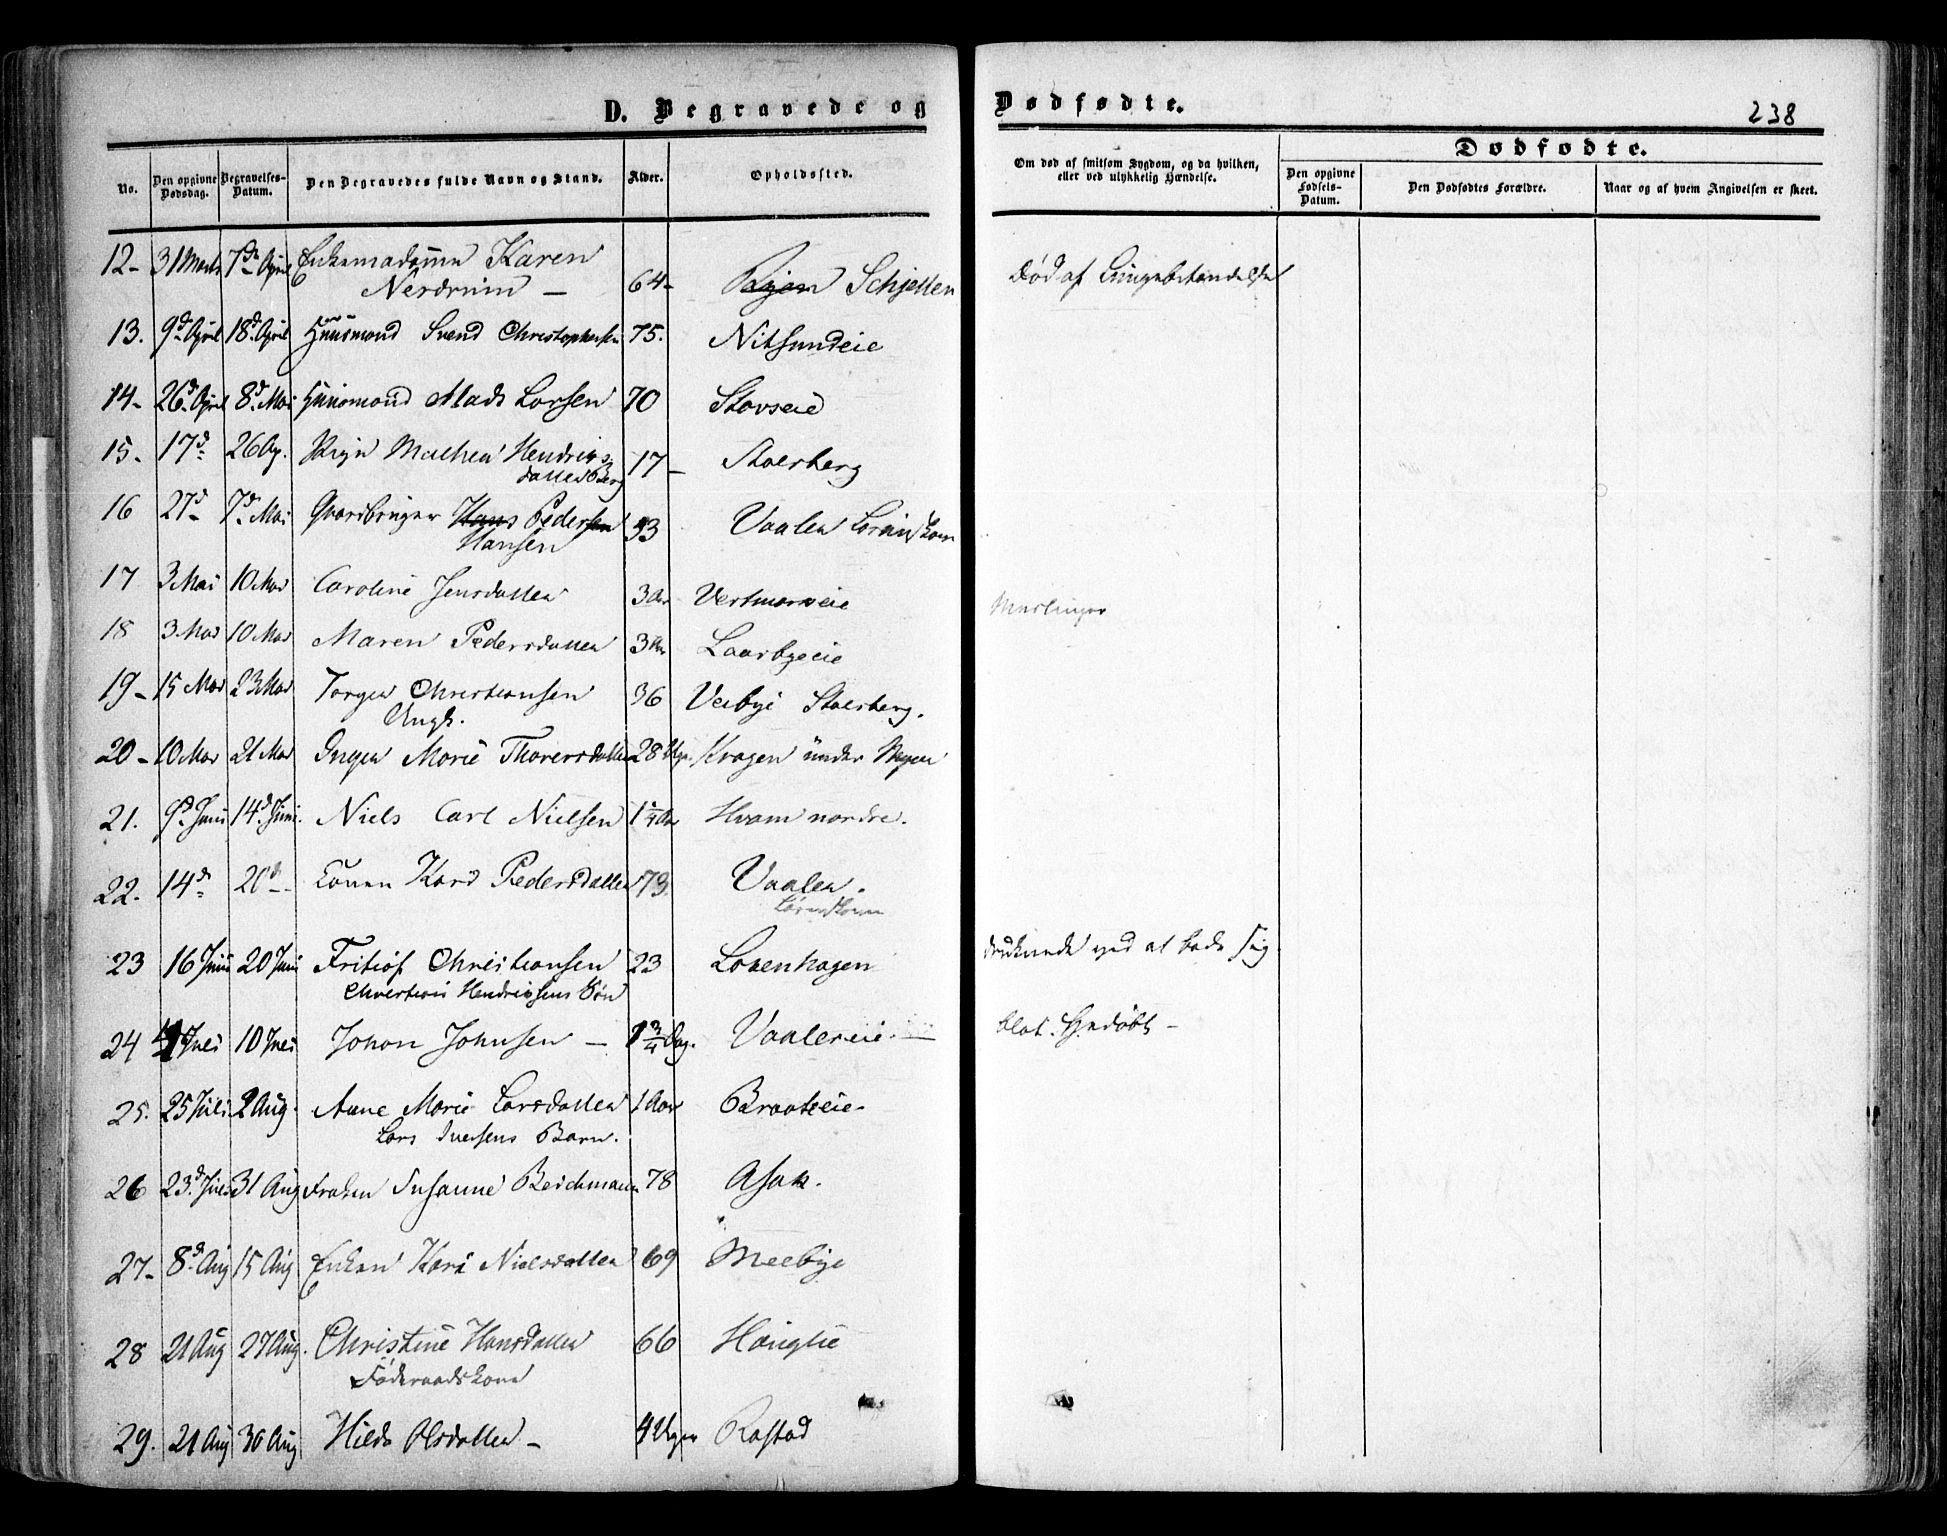 D. Begravede og Dødfødte.
238
No.
Den opgivne Dødsdag.
Begravelses-Datum.
Den Begravedes fulde Navn og Stand.
Alder.
Opholdssted.
Om død af smitsom Sygdom, og da hvilken, eller ved ulykkelig Hændelse.
Dødfødte.
Den opgivne Fødsels-Datum.
Den Dødfødtes Forældre.
Naar og af hvem Angivelsen er skeet.
12- 31 Marts 7de April Enkemadamm Karen 
Nerdrum - 64- Schjetten Død af Lungebetændelse
13. 9d April 18d April Huusmand Svend Christophersen 75. Nitsundeie
14- 26d April 8d Mai Huusmand Mads Larsen 70 Stovseie
15- 17d 26 Ap. Pige Mathea Hendrics
datter Berg 17- Stalsberg
16 27d 7d Mai Gaardbruger Hans Pedersen
Hansen 53 Vaaler Lørenskov
17 3 Mai 10 Mai Caroline Jensdatter 3 Aar Vestmarseie Mæslinger
18 3 Mai 10 Mai Maren Pedersdatter 3 Aar Laarbyeie
19- 15 Mai 23 Mai Torger Christiansen
Ungk. 36 Veibye Stalsberg.
20- 10 Mai 21 Mai Inger Marie Thorersdatter 28 Uger Kragen under
21. 9d Juni 14d Juni. Niels Carl Nielsen 1 1/4 Aar Hvam nordre.
22. 14d 20d Konen Kari Pedersdatter 73. Vaaler.
Lørenskoven
23 16 Juni 20 Juni Fritiof Christiansen 23 Losenhagen druknede ved at bade sig
Christian Hendricksens Søn
24 4 Juli 10 Juli Johan Johnsen - 1 3/4 Dag. Vaalereie. blot. Hjdøbt -
25. 25 Juli 2 Aug. Anne Marie Larsdatter 1 Aar Braateeie.
Lars Iversens Barn.
26 23d Juli 31 Aug Frøken Susanne Beichmann 78 Asak.
27- 8d Aug 15 Aug Enken Kari Nielsdatter 69 Meebye
28 21 Aug 27 Aug. Christine Hansdatter 66 Houglie
Føderaadskone
29. 21 Aug 30 Aug Hilda Olsdatter - 4 Uger Rastad